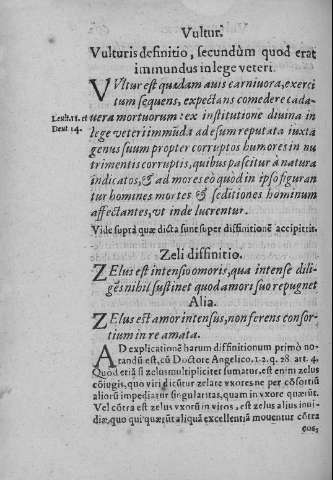 Vultur.
Vulturis definitio, secundùm quod erat
immundus in lege veteri.
VVltur est quædam auis carniuora, exerci
tum sequens, expectans comedere cada-
Leuit.11. et
Deut 14.
uera mortuorum: ex institutione diuina in
lege veteri immũda ad esum reputata iuxta
genus suum propter corruptos humores in nu
trimentis corruptis, quibus pascitur à natura
indicatos, & ad mores eò quòd in ipso figuran
tur homines mortes & seditiones hominum
affectantes, vt inde lucrentur.
Vide suprà quæ dicta sunt super diffinitionẽ accipitris.
Zeli diffinitio.
ZElus est intensio amoris, qua intense dili-
gẽs nihil sustinet quod amori suo repugnet
Alia.
ZElus est amor intensus, non ferens consor-
tium in re amata.
AD explicationẽ harum diffinitionum primò no-
tandũ est, cũ Doctore Angelico. 1. 2. q. 28. art. 4.
Quòd etiã si zelus multipliciter sumatur, est enim zelus
cõiugis, quo viri dicũtur zelare vxores ne per cõsortiũ
aliorũ impediatur singularitas, quam in vxore quærũt.
Vel cõtra est zelus vxorũ in viros, est zelus alius inui-
diæ, quo qui quærũt aliquã excellentiã mouentur cõtra
eos,